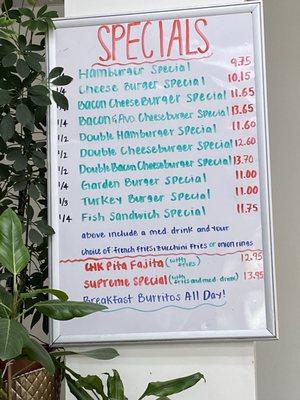 SPECIALS
Hamburger Special 9.75
1/4 Cheese Burger Special 10.15
1/4 Bacon Cheese Burger Special 11.65
1/4 Bacon & Avo. Cheeseburger Special 13.65
1/2 Double Hamburger Special 11.60
1/2 Double Cheeseburger Special 12.60
1/2 Double Bacon Cheeseburger Special 13.70
1/4 Garden Burger Special 11.00
1/3 Turkey Burger Special 11.00
1/4 Fish Sandwich Special 11.75
above include a med. drink and your
choice of: french fries, zucchini fries or onion rings
CHK Pita Fajita (with fries) 12.95
Supreme Special (with fries and med. drink) 13.95
Breakfast Burritos All Day!